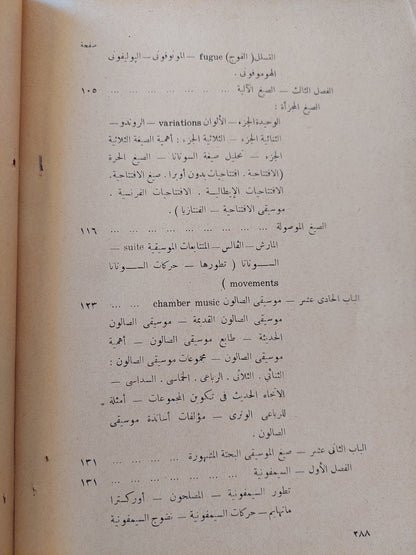 صفحة
التسلل ( الفوج ) fugue — المونوفونى — البوليفونى
الهوموفونى .
الفصل الثالث — الصيغ الآلية ... ... ... ... ... ... ... ١٠٥
الصيغ المجزأة :
الوحيدة الجزء — الألوان variations — الروندو —
الثنائية الجزء — الثلاثية الجزء : أهمية الصيغة الثلاثية
الجزء — تحليل صيغة السوناتا — الصيغ الحرة
( الافتتاحية . افتتاحيات بدون أوبرا . صيغ الافتتاحية .
الافتتاحيات الإيطالية . الافتتاحيات الفرنسية .
موسيقى الافتتاحية — الفنتازيا ) .
الصيغ الموصولة ... ... ... ... ... ... ... ... ١١٦
المارش — الڤالس — المتتابعات الموسيقية suite —
السوناتا ( تطورها — حركات السوناتا
movements )
الباب الحادى عشر — موسيقى الصالون chamber music ... ... ١٢٣
موسيقى الصالون القديمة — موسيقى الصالون
الحديثة — طابع موسيقى الصالون — أهمية
موسيقى الصالون — مجموعات موسيقى الصالون :
الثنائى . الثلاثى . الرباعى . الخماسى . السداسى —
الاتجاه الحديث فى تكوين المجموعات — أمثلة
للرباعى الوترى — مؤلفات أساتذة موسيقى
الصالون .
الباب الثانى عشر — صيغ الموسيقى البحتة المشهورة ... ... ... ١٣١
الفصل الأول — السيمفونية ... ... ... ... ... ... ... ١٣١
تطور السيمفونية — المصلحون — أوركسترا
مانهايم — حركات السيمفونية — نضوج السيمفونية
٢٨٨